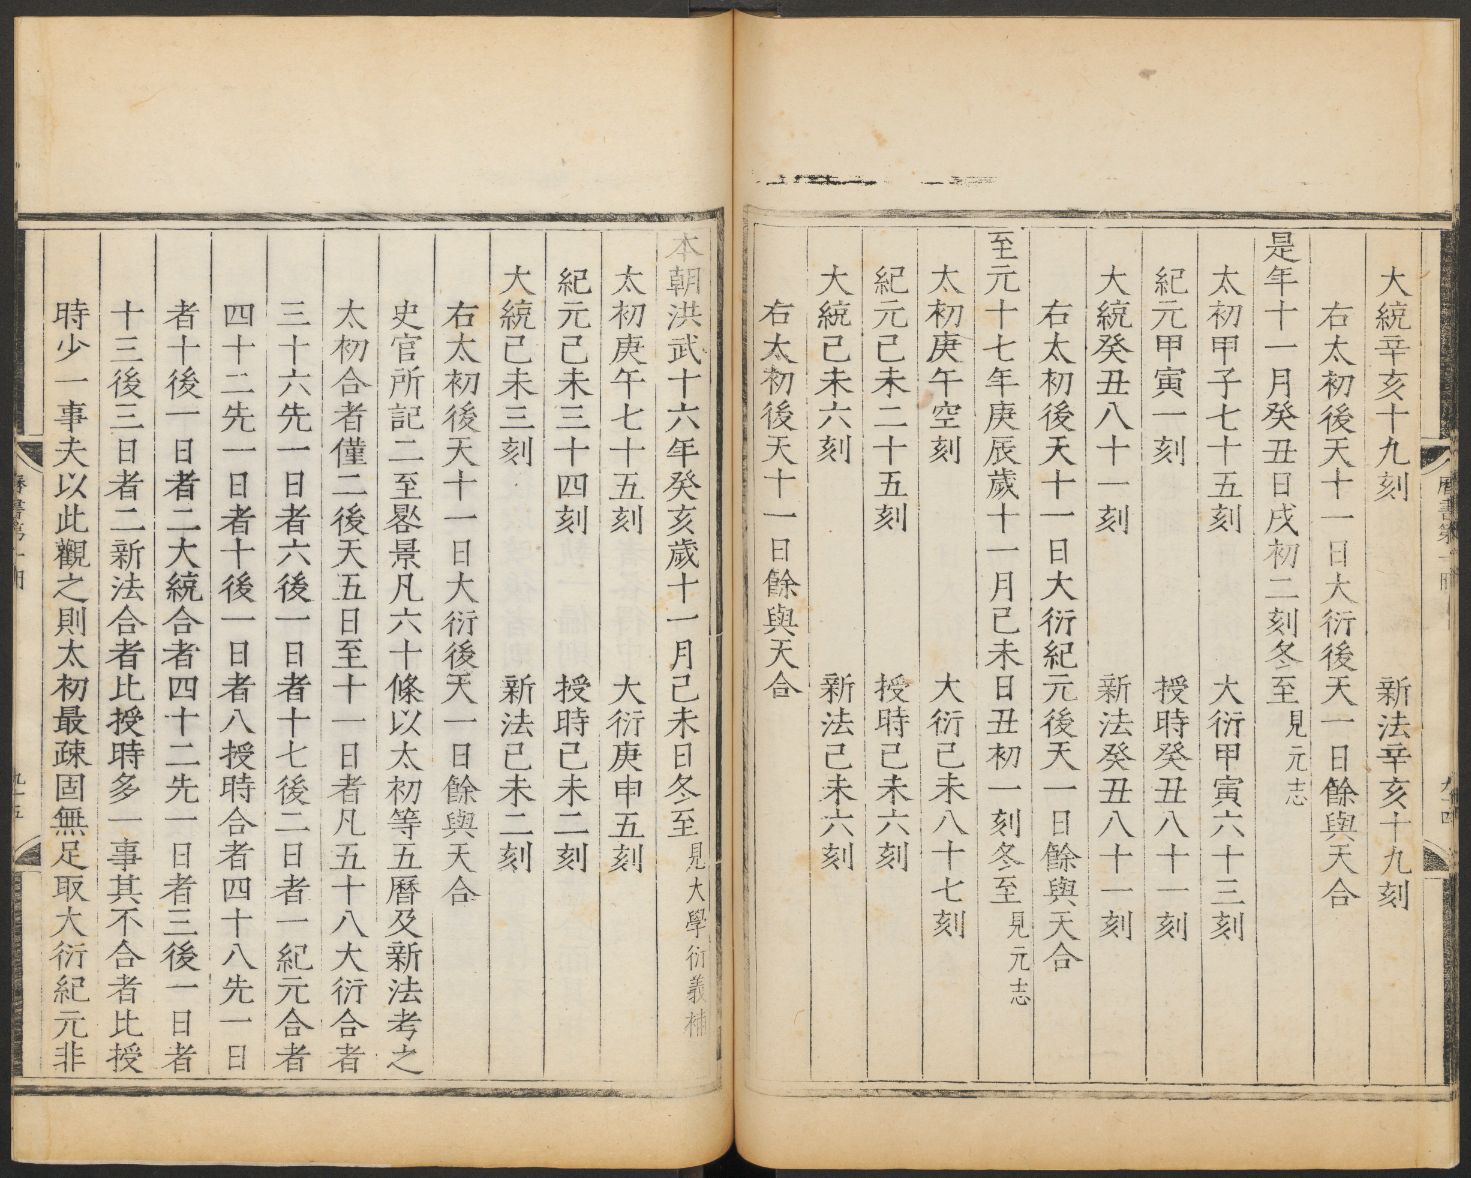 大統辛亥十九刻　新法辛亥十九刻
右太初後天十一日大衍後天一日餘與天合
是年十一月癸丑日戌初二刻冬至見元志
太初甲子七十五刻　大衍甲寅六十三刻
紀元甲寅一刻　授時癸丑八十一刻
大統癸丑八十一刻　新法癸丑八十一刻
右太初後天十一日大衍紀元後天一日餘與天合
至元十七年庚辰歲十一月己未日丑初一刻冬至見元志
太初庚午空刻　大衍己未八十七刻
紀元己未二十五刻　授時己未六刻
大統己未六刻　新法己未六刻
右太初後天十一日餘與天合
本朝洪武十六年癸亥歲十一月己未日冬至見大學衍義補
太初庚午七十五刻　大衍庚申五刻
紀元己未三十四刻　授時己未二刻
大統己未三刻　新法己未二刻
右太初後天十一日大衍後天一日餘與天合
史官所記二至晷景凡六十條以太初等五曆及新法考之
太初合者僅二後天五日至十一日者凡五十八大衍合者
三十六先一日者六後一日者十七後二日者一紀元合者
四十二先一日者十後一日者八授時合者四十八先一日
者十後一日者二大統合者四十二先一日者三後一日者
十三後三日者二新法合者比授時多一事其不合者比授
時少一事夫以此觀之則太初最疎固無足取大衍紀元非
曆書第一冊
九十四
九十五